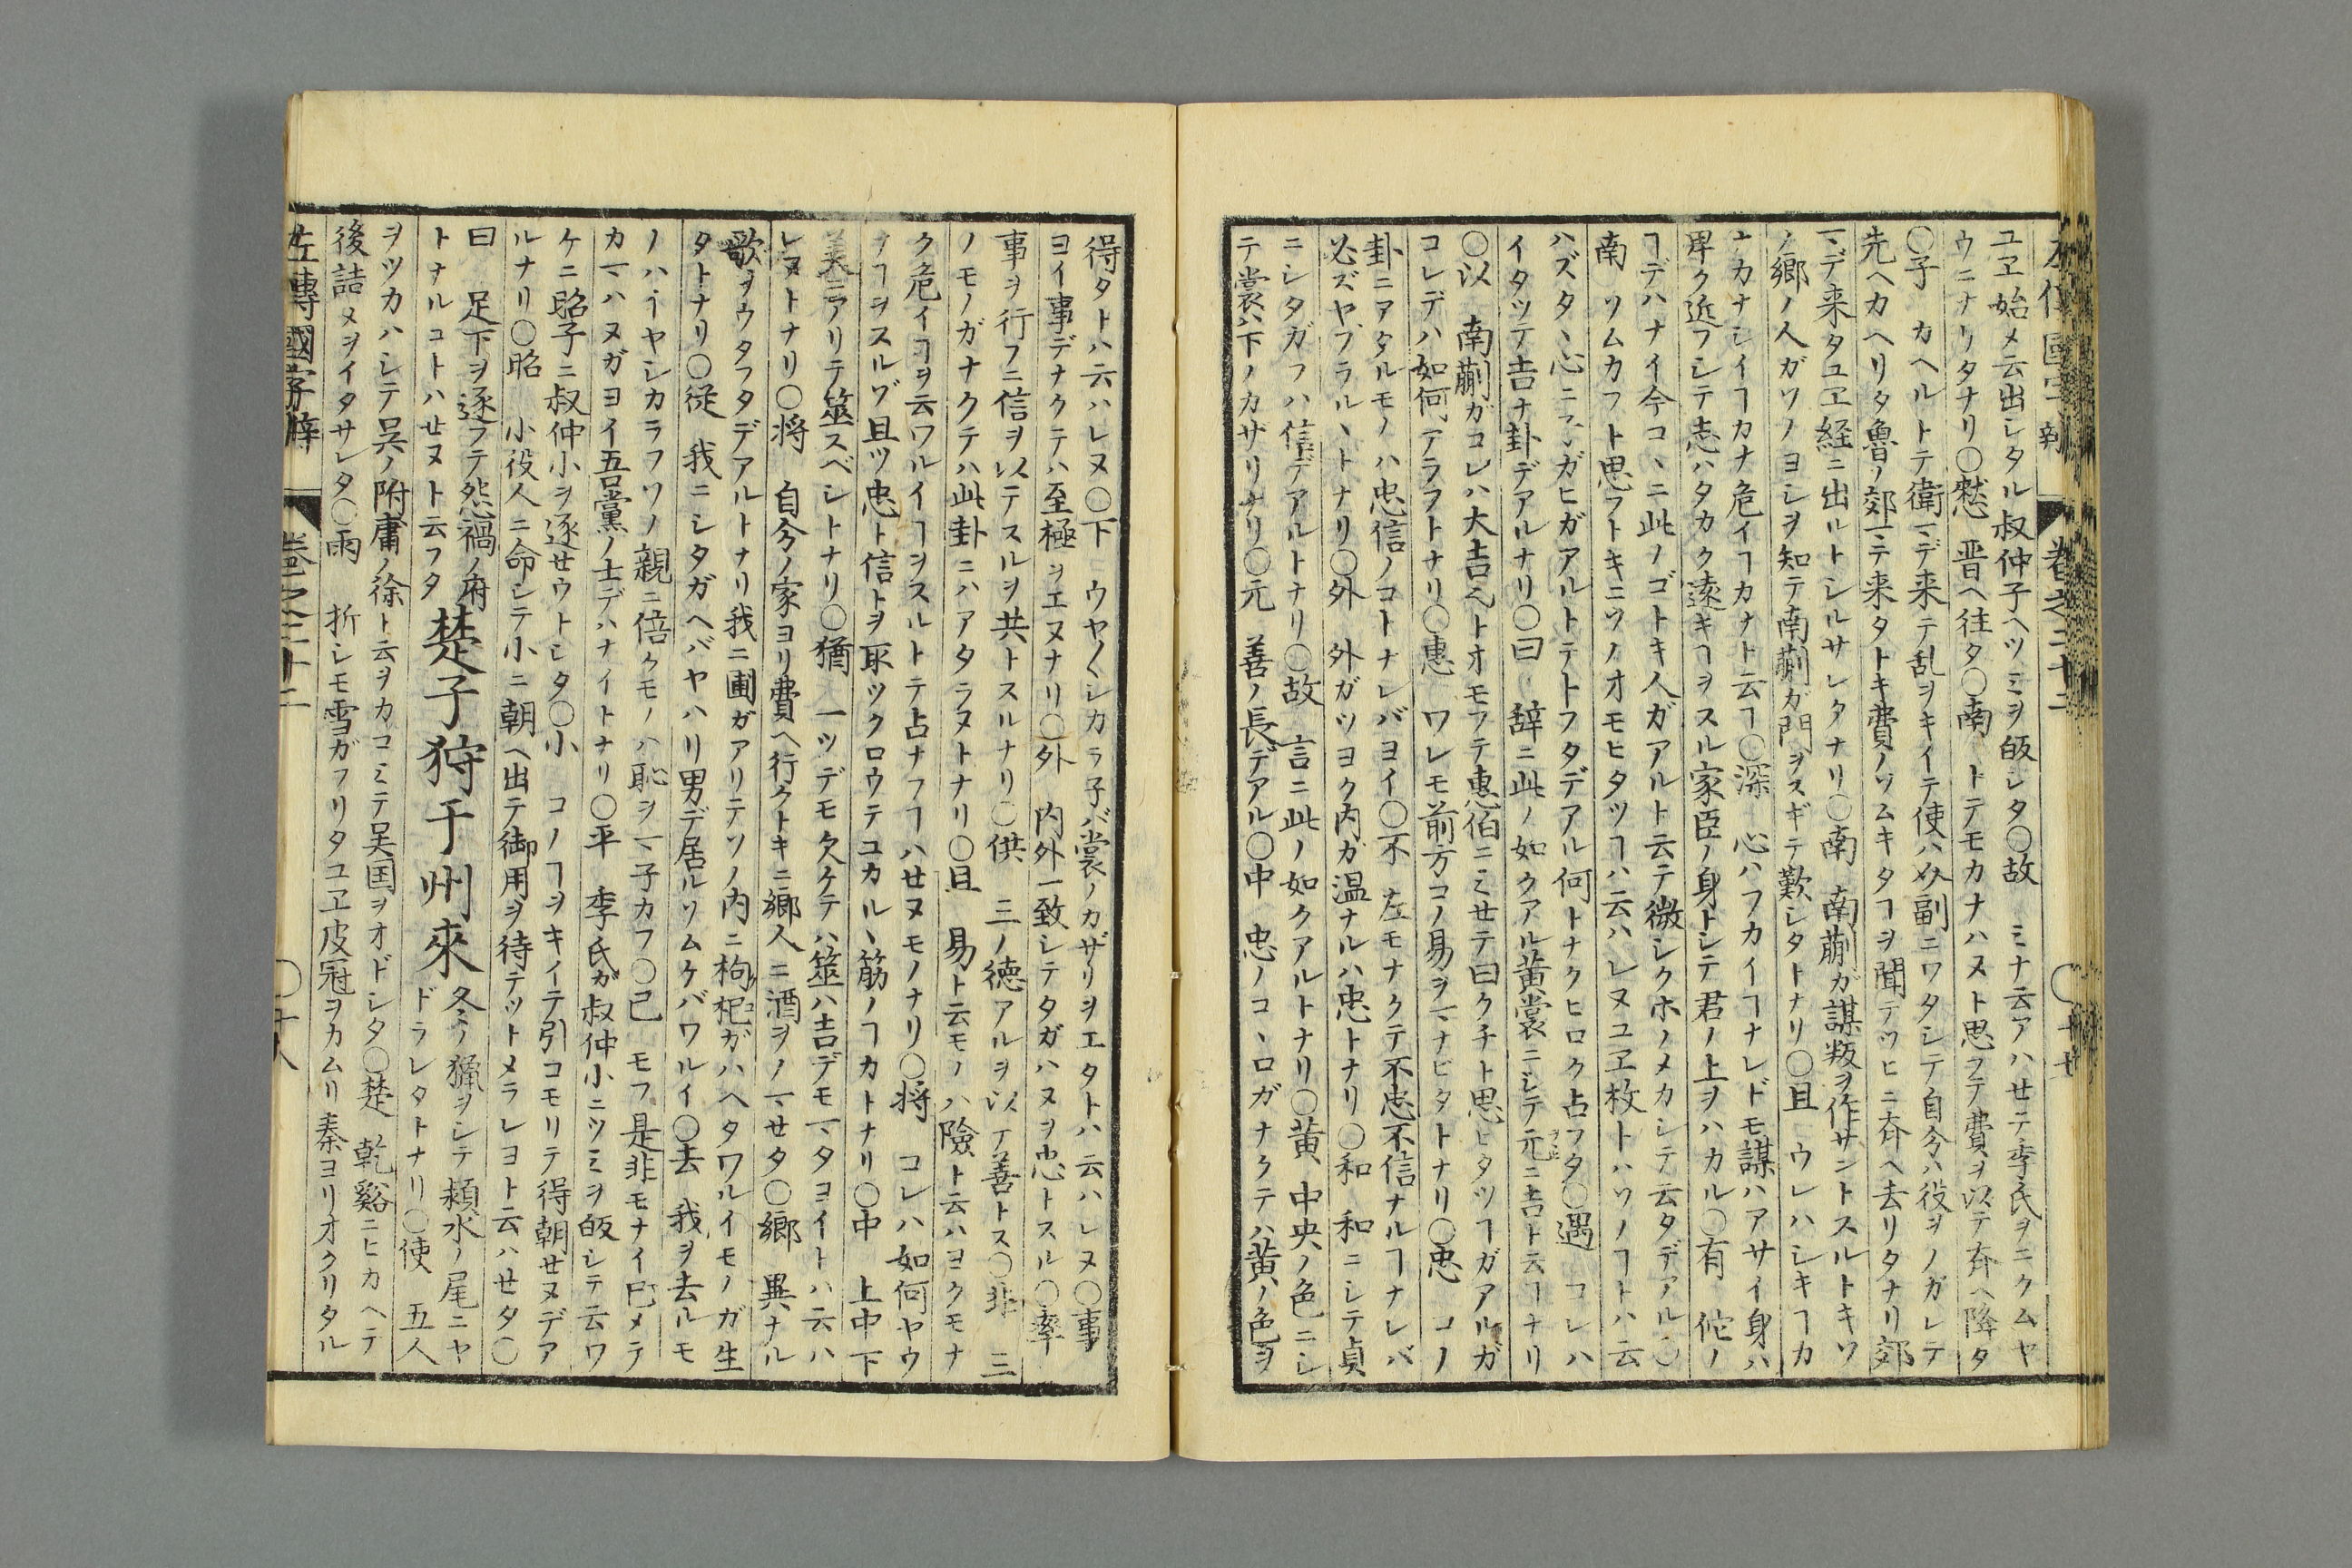 左傳國字辯 卷之二十二 〇十七
ユヱ始メ云出シタル叔仲子ヘツミヲ皈シタ〇故 ミナ云アハせテ季氏ヲニクムヤ
ウニナリタナリ〇慭 晋ヘ往タ〇南 トテモカナハヌト思フテ費ヲ以テ斉ヘ降タ
〇子 カヘルトテ衛マデ来テ乱ヲキイテ使ハ介副ニワタシテ自分ハ役ヲノガレテ
先ヘカヘリタ魯ノ郊マテ来タトキ費ノソムキタヿヲ聞テツヒニ斉ヘ去リタナリ郊
マデ来タユヱ経ニ出ルトシルサレタナリ〇南 南蒯ガ謀叛ヲ作サントスルトキソ
ノ郷ノ人ガソノヨシヲ知テ南蒯ガ門ヲスギテ歎シタトナリ〇且 ウレハシキヿカ
ナカナシイヿカナ危イヿカナト云ヿ〇深 心ハフカイヿナレドモ謀ハアサイ身ハ
卑ク近フシテ志ハタカク遠キヿヲスル家臣ノ身トシテ君ノ上ヲハカル〇有 佗ノ
ヿデハナイ今コヽニ此ノゴトキ人ガアルト云テ微シクホノメカシテ云タデアル〇
南 ソムカフト思フトキニソノオモヒタツヿハ云ハレヌユヱ枚トハソノヿトハ云
ハズタヽ心ニフヽガヒガアルトテトフタデアル何トナクヒロク占フタ〇遇 コレハ
イタツテ吉ナ卦デアルナリ〇曰 辞ニ此ノ如クアル黄裳ニシテ元ニ吉ト云ヿナリ
〇以 南蒯ガコレハ大吉ヘトオモフテ惠伯ニミせテ曰クチト思ヒタツヿガアルガ
コレデハ如何アラフトナリ〇惠 ワレモ前方コノ易ヲマナビタトナリ〇忠 コノ
卦ニアタルモノハ忠信ノコトナレバヨイ〇不 左モナクテ不忠不信ナルヿナレバ
必ズヤブラルヽトナリ〇外 外ガツヨク内ガ温ナルハ忠トナリ〇和 和ニシテ貞
ニシタガフハ信デアルトナリ〇故 言ニ此ノ如クアルトナリ〇黄 中央ノ色ニシ
テ裳ハ下ノカサリナリ〇元 善ノ長デアル〇中 忠ノコヽロガナクテハ黄ノ色ヲ
得タトハ云ハレヌ〇下 ウヤ〱シカラ子バ裳ノカザリヲエタトハ云ハレヌ〇事
ヨイ事デナクテハ至極ヲエヌナリ〇外 内外一致シテタガハヌヲ忠トスル〇率
事ヲ行フニ信ヲ以テスルヲ共トスルナリ〇供 三ノ徳アルヲ以テ善トス〇非 三
ノモノガナクテハ此卦ニハアタラヌトナリ〇且 易ト云モノハ險ト云ハヨクモナ
ク危イヿヲ云ワルイヿヲスルトテ占ナフヿハせヌモノナリ〇将 コレハ如何ヤウ
ナヿヲスルゾ且ツ忠ト信トヲ取ツクロウテユカルヽ筋ノヿカトナリ〇中 上中下
美ニアリテ筮スベシトナリ〇猶 一ツデモ欠ケテハ筮ハ吉デモマタヨイトハ云ハ
レヌトナリ〇将 自分ノ家ヨリ費ヘ行クトキニ郷人ニ酒ヲノマせタ〇郷 異ナル
歌ヲウタフタデアルトナリ我ニ圃ガアリテソノ内ニ枸杞ガハヘタワルイモノガ生
タトナリ〇従 我ニシタガヘバヤハリ男デ居ルソムケバワルイ〇去 我ヲ去ルモ
ノハイヤシカラフソノ親ニ倍クモノハ恥ヲマ子カフ〇已 モフ是非モナイ已メテ
カマハヌガヨイ五吾黨ノ士デハナイトナリ〇平 季氏ガ叔仲小ニツミヲ皈シテ云ワ
ケニ昭子ニ叔仲小ヲ逐せウトシタ〇小 コノヿヲキイテ引コモリテ得朝せヌデア
ルナリ〇昭 小役人ニ命シテ小ニ朝ヘ出テ御用ヲ待テツトメラレヨト云ハせタ〇
曰 足下ヲ逐フテ怨禍ノ府
トナルコトハせヌト云フタ
楚子狩于州來
冬ノ獵ヲシテ頴水ノ尾ニヤ
ドラレタトナリ〇使 五人
ヲツカハシテ吴ノ附庸ノ徐ト云ヲカコミテ吴国ヲオドシタ〇楚 乾谿ニヒカヘテ
後詰メヲイタサレタ〇雨 折シモ雪ガフリタユヱ皮冠ヲカムリ秦ヨリオクリタル
左傳國字辯 卷之二十二 〇十八